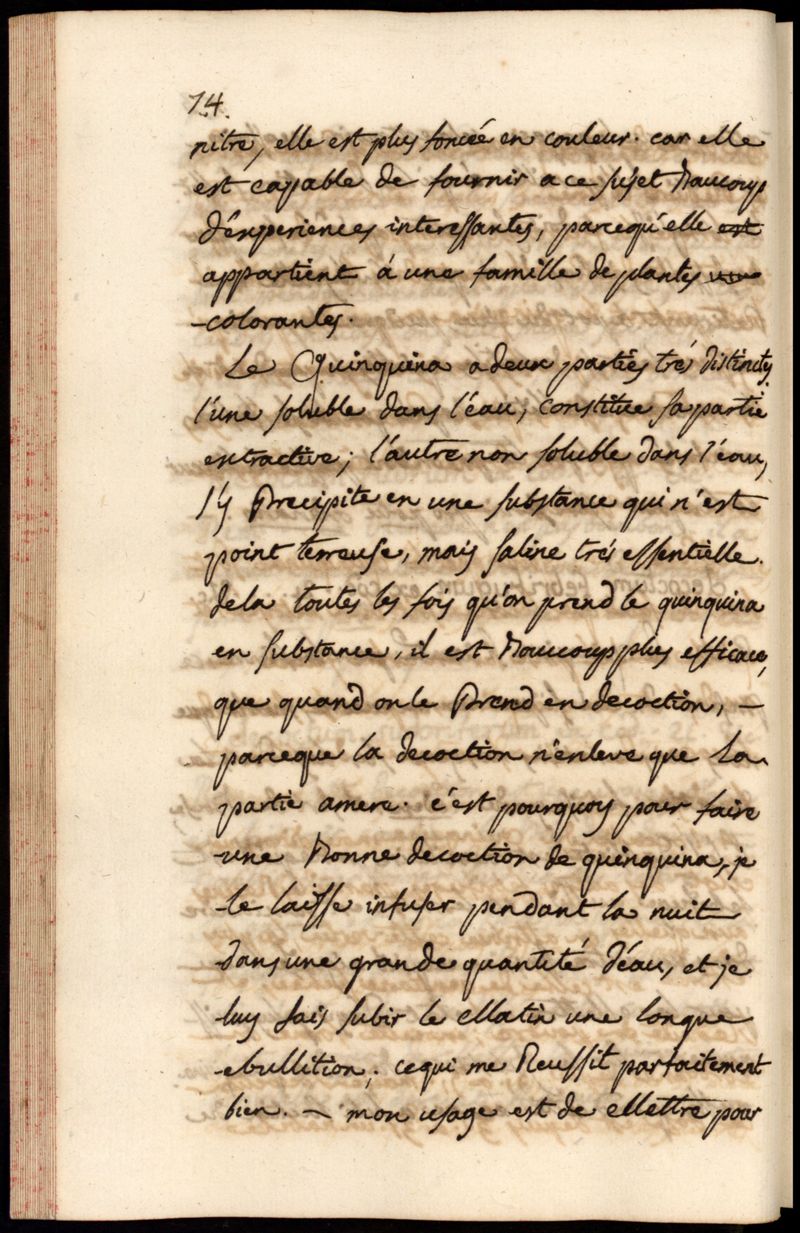 74.
nitre, elle est plus foncée en couleur. car elle
est capable de fournir a ce sujet Baucoup
d'éxperiences interessantes, parcequ'elle est
appartient á une famille de plantes
colorantes.
Le Quinquina a deux parties trés distinctes,
l'une soluble dans l'éau, constitue sa partie
extractive; l'autre non soluble dans l'éau,
s'y Precipite en une substance qui n'est
point terreuse, mais saline trés essentielle.
dela toutes les fois qu'on prend le quinquina
en substance, il est Baucoup plus efficace,
que quand on le Prend en decoction, –
parceque la decoction n'enleve que La
partie amere. c'est pourquoy pour faire
une Bonne decoction de quinquina, je
le laisse infuser pendant la nuit
dans une grande quantité d'éau, et je
luy fais subir le Matin une longue
ebullition; cequi me Reussit parfaitement
bien. – mon usage est de Mettre pour